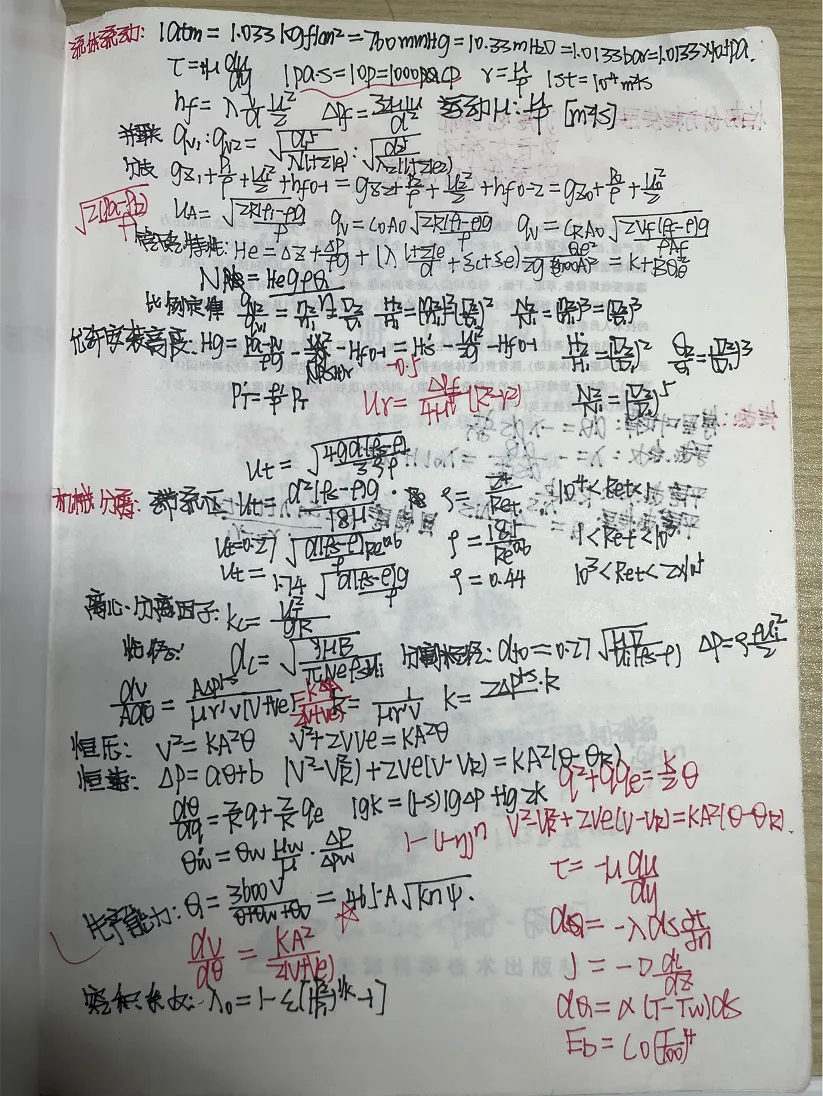 流体流动: 1atm = 1.033 kgf/cm² = 760mmHg = 10.33mH2O = 1.0133bar = 1.0133×10⁵Pa.
τ = μ du/dy 1Pa·s = 10P = 1000cP γ = μ/ρ 1St = 10⁻⁴m²/s
hf = λ l/d u²/2 ΔPf = 32μlu/d² 运动μ: μ/ρ [m²/s]
并联 qv1 : qv2 = √(d1⁵/λ1(l+Σle)1) : √(d2⁵/λ2(l+Σle)2)
分支 gz1 + P1/ρ + u1²/2 + hf0-1 = gz2 + P2/ρ + u2²/2 + hf0-2 = gz0 + P0/ρ + u0²/2
√(2(Pa-Pb)/ρ) uA = √(2R(ρ-ρ)g/ρ) qv = C0A0 √(2R(ρ-ρ)g/ρ) qv = CRA0 √(2Vf(ρf-ρ)g/ρAf)
管路特性: He = Δz + ΔP/ρg + (λ (l+Σle)/d + Σζ) Qe²/2g(3600A)² = K + BQe²
N = HegρQ
比例定律 qv2/qv1 = n2/n1 = D2/D1 H2/H1 = (n2/n1)² = (D2/D1)² N2/N1 = (n2/n1)³ = (D2/D1)³
允许安装高度: Hg = (Pa-Pv)/ρg - NPSHr - Hf0-1 = Hs' - u1²/2g - Hf0-1 H2/H1 = (D2/D1)² Q2/Q1 = (D2/D1)³
-0.5
PT' = ρ'/ρ PT ur = ΔPf/4μl (R²-r²) N2/N1 = (D2/D1)⁵
ut = √(4gd(ρs-ρ)/3ζρ)
机械分离: 滞流区: ut = d²(ρs-ρ)g/18μ ζ = 24/Ret 10⁻⁴<Ret<1
ut=0.27 √(d(ρs-ρ)g/ρ Re^0.6) ζ = 18.5/Re^0.6 1<Ret<10³
ut = 1.74 √(d(ρs-ρ)g/ρ) ζ = 0.44 10³<Ret<2×10⁵
离心分离因子: Kc = uT²/gR
临界粒径: dc = √(9μB/πNeρsui) 分割粒径: d50 = 0.27 √(μD/ui(ρs-ρ)) ΔP = ζ ρui²/2
dV/Adθ = AΔP^(1-s)/μr'v(V+Ve) = KA/2(V+Ve) k = 1/μr'v K = 2ΔP^(1-s)·k
恒压: V² = KA²θ V²+2VVe = KA²θ
恒速: ΔP = aθ+b (V²-VR²)+2Ve(V-VR) = KA²(θ-θR) q²+2qqe = Kθ
dθ/dq = 2/K q + 2/K qe lgK = (1-s)lgΔP + lg2k
1-(1-η)ⁿ V²-VR²+2Ve(V-VR) = KA²(θ-θR).
θw' = θw μw/μ · ΔP/ΔPw τ = -μ du/dy
生产能力: Q = 3600V/(θ+θw+θD) = 465A√(Knψ). dQ = -λds dt/dn
dV/dθ = KA²/2(V+Ve) J = -D dc/dz
容积系数: λ0 = 1-ε[(P2/P1)^(1/k)-1] dQ = α(T-Tw)ds
Eb = C0(T/100)⁴